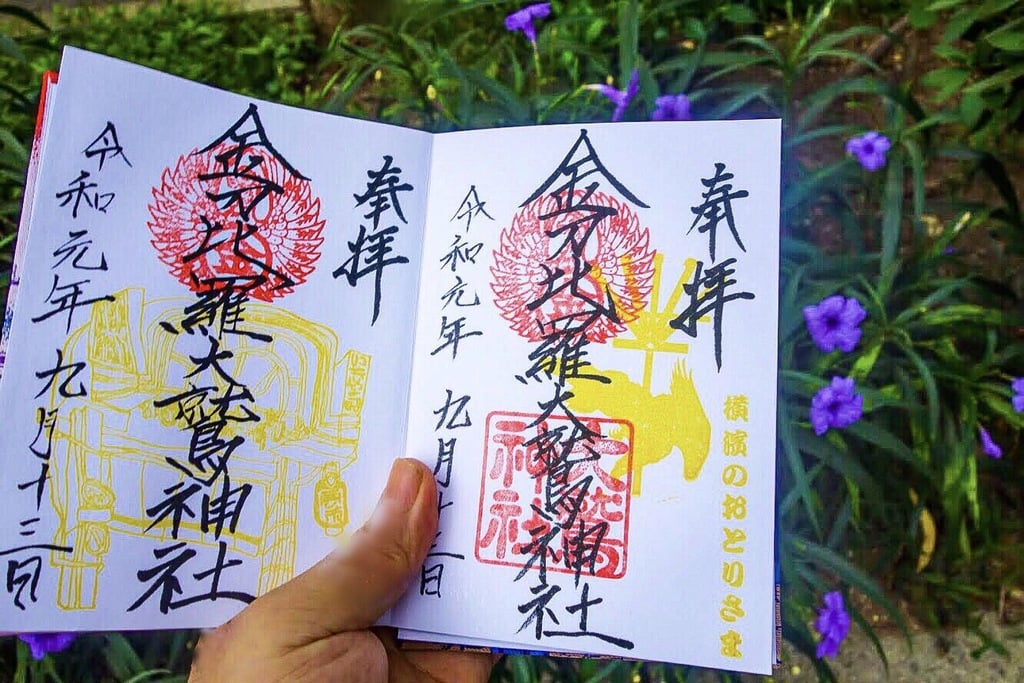 奉拝
金刀比羅大鷲神社
令和元年九月十三日
奉拝
横濱のおとりさま
金刀比羅大鷲神社
令和元年 九月十三日